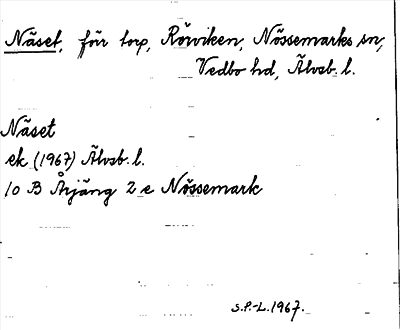 Näset, för torp, Rörviken, Nössemarks sn,
Vedbo hd, Älvsb. l.
Näset
ek. (1967) Älvsb. l.
10 B Årjäng 2 e Nössemark
S.P.-L. 1967.